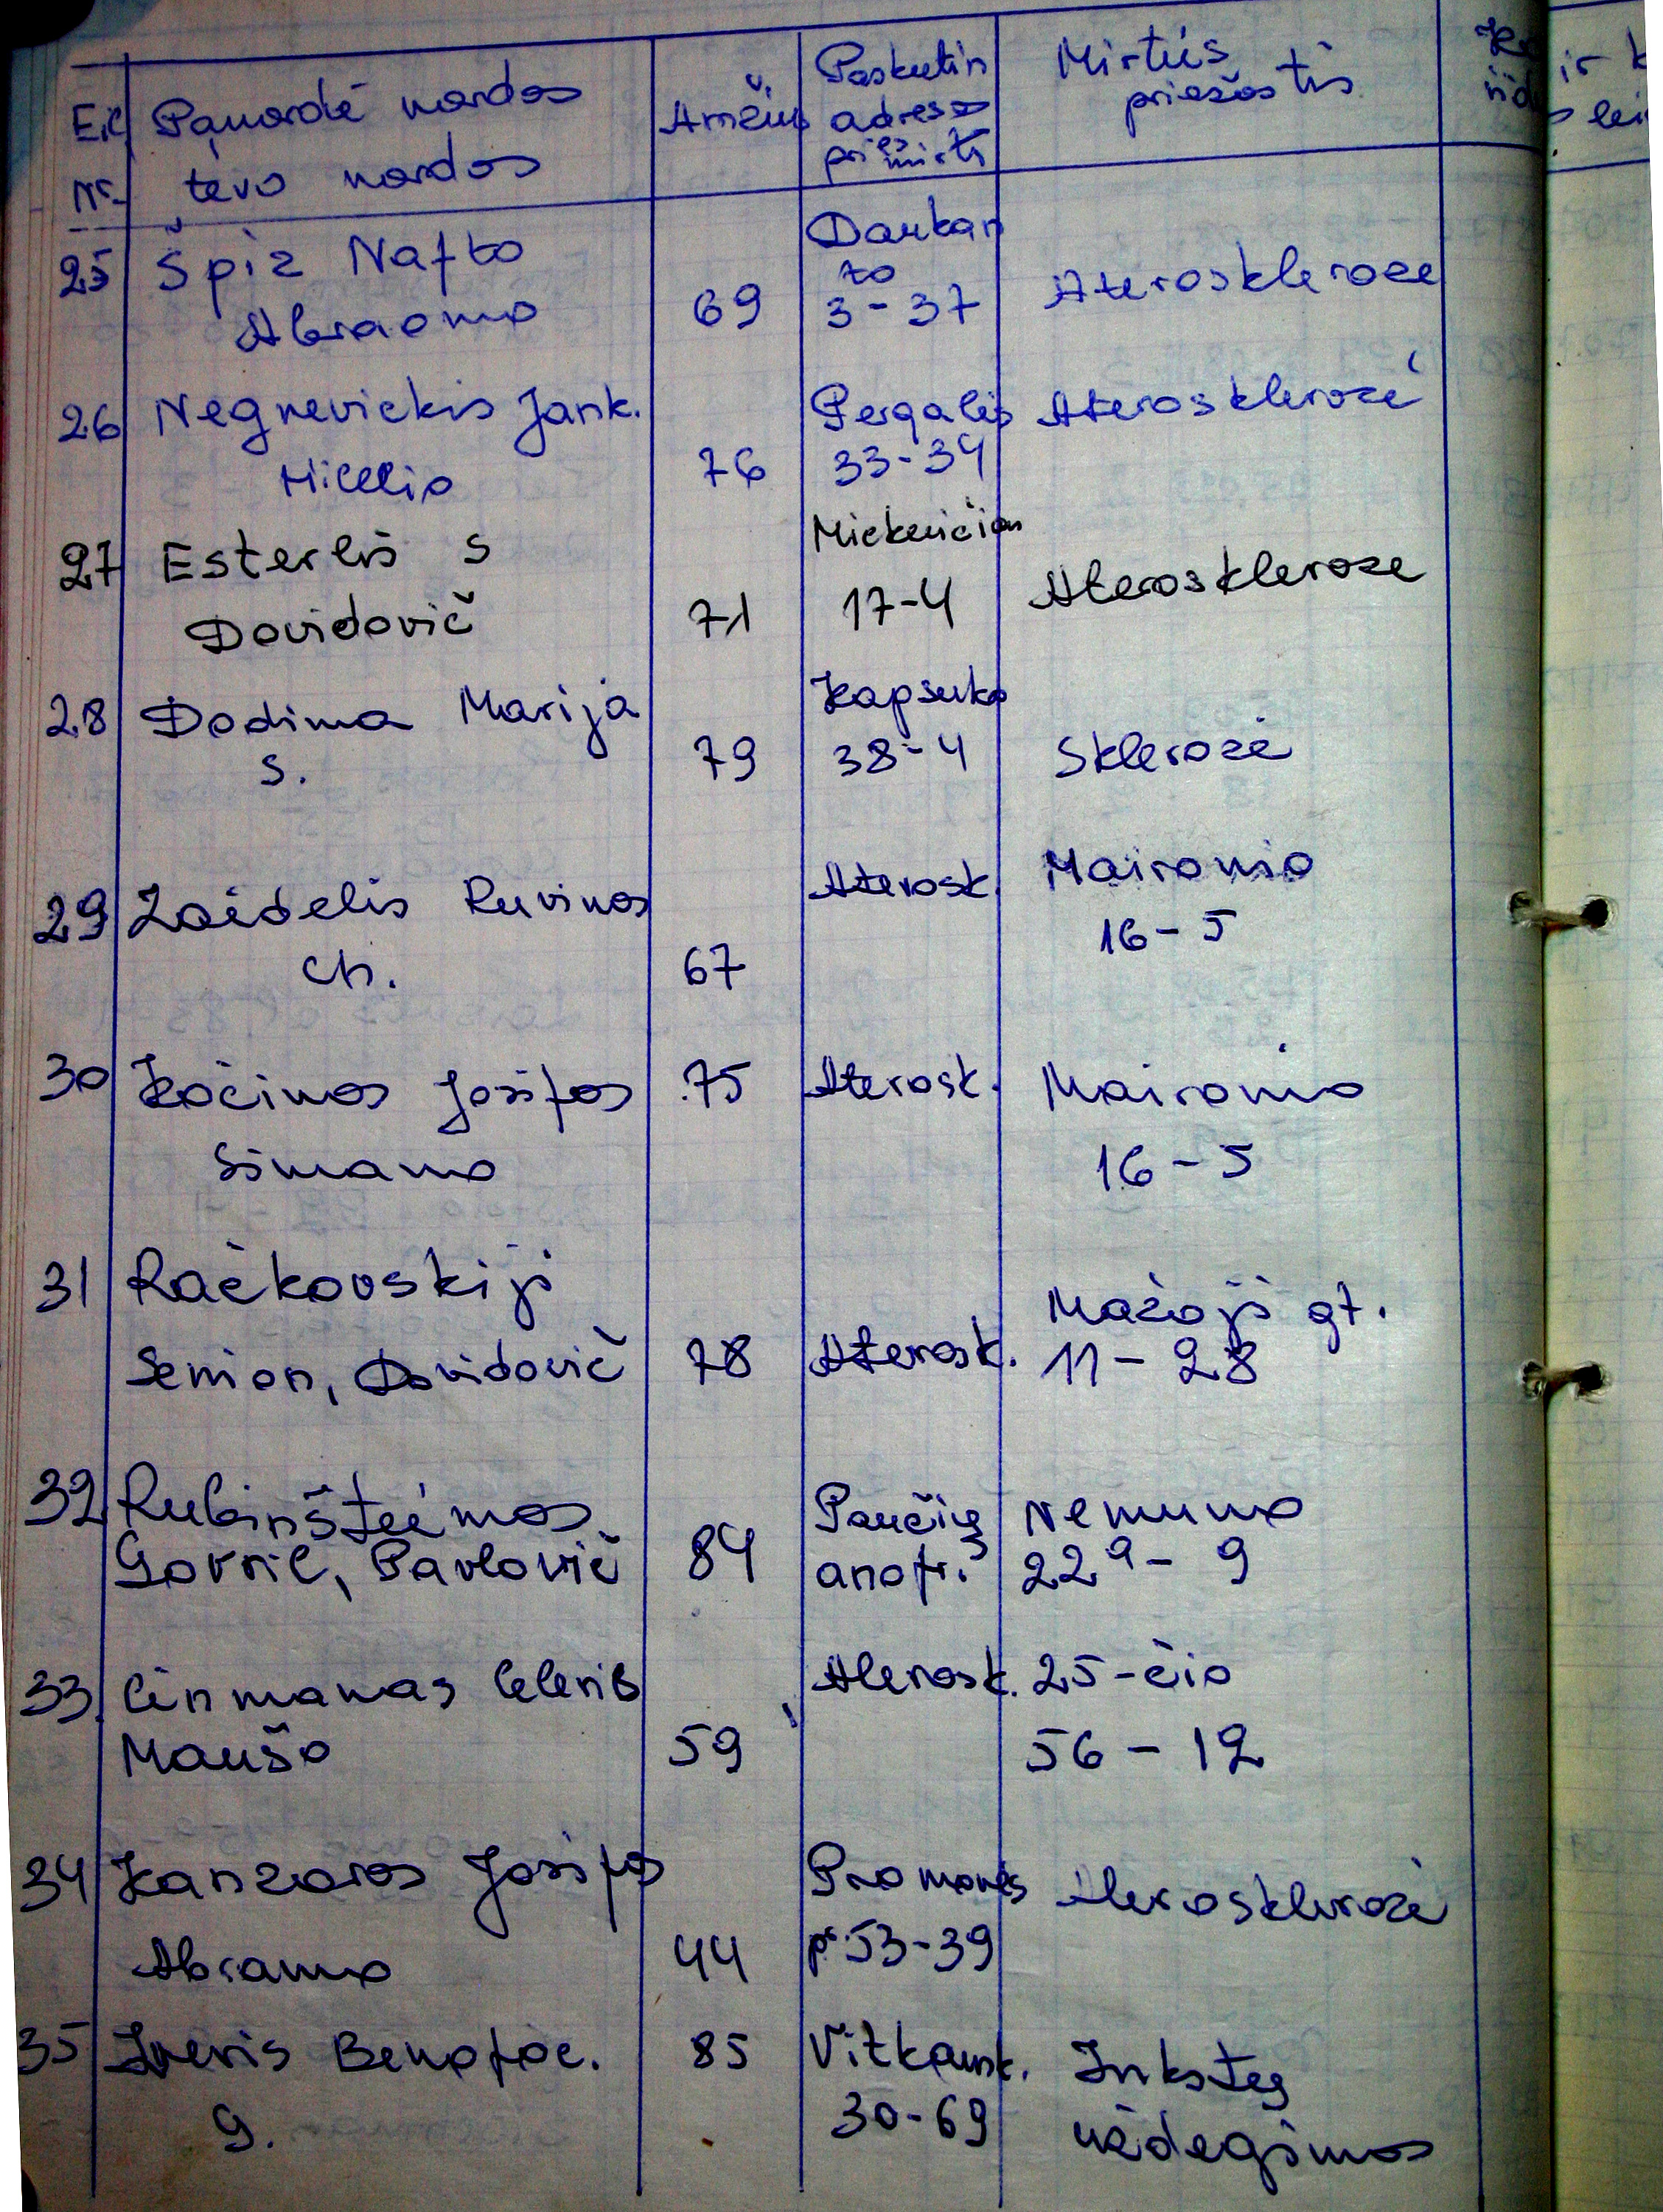 Eil. Nr. Pavardė vardas tėvo vardas Amžius Paskutin adresas prieš mirtį Mirties priežastis
25 Špiz Nafto Daukan
Abraomo 69 to 3-37 Aterosklerozė
26 Negnevickis Jank. Pergalės Aterosklerozė
Michelio 76 33-34
27 Esterlis S Mickevičiaus
Dovidovič 71 17-4 Aterosklerozė
28 Dodina Marija Kapsuko
S. 79 38-4 Sklerozė
29 Zaidelis Ruvinas Aterosk. Maironio
Ch. 67 16-5
30 Kočinas Josifas 75 Aterosk. Maironio
Simano 16-5
31 Račkovskij Mažoji gt.
Semion, Dovidovič 78 Aterosk. 11-28
32 Rubinšteinas Plaučių Nemuno
Gavril, Pavlovič 84 22a-9
33 Leleris Aterosk. 25-čio
Maušo 59 56-12
34 Kanzaras Josifas Pramonės Aterosklerozė
Abramo 44 pr. 53-39
35 85 Vitkausk. Inkstų
G. 30-69 uždegimas